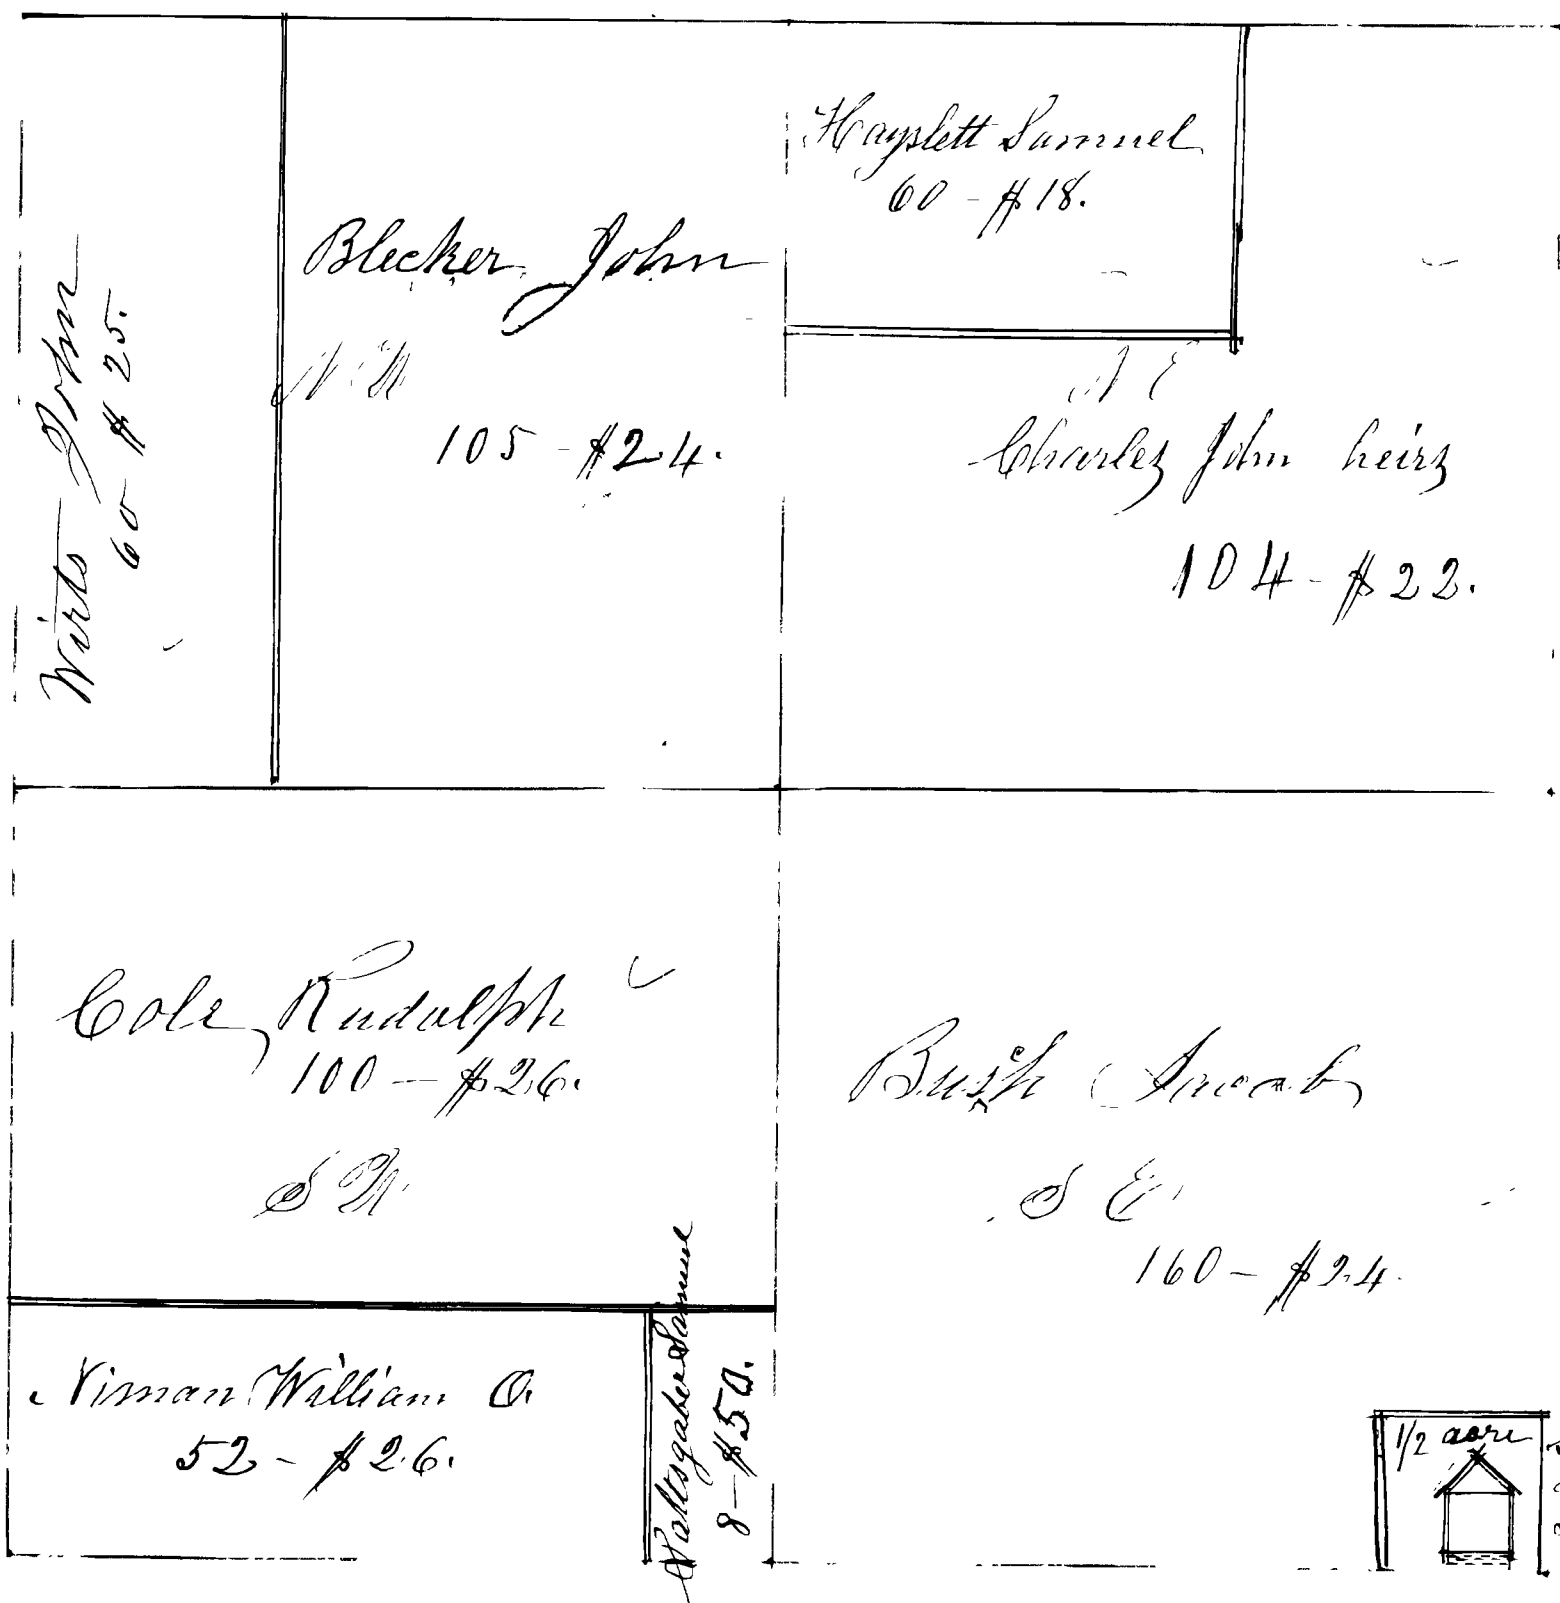 Wirts John
60 $25.
Blecker John
N.W.
105 - $24.
Hayslett Samuel
60 - $18.
N E
Charles John heirs
104 - $22.
Cole, Rudolph
100 - $26.
S W.
Bush Jacob
S E
160 - $24.
Niman William O.
52 - $26.
Samuel
8 - $50.
1/2 acre